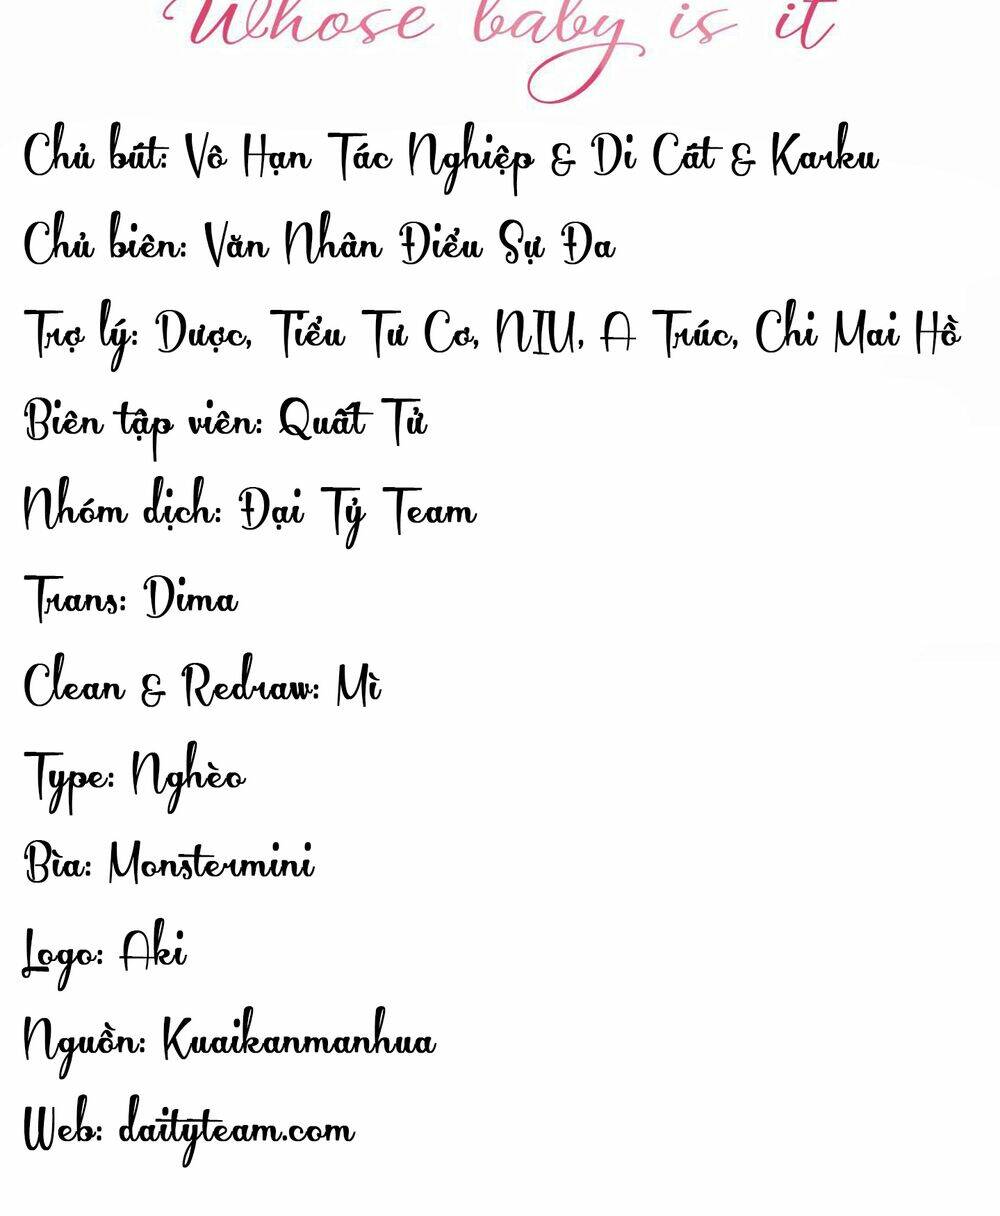 Whose baby is it
Chủ bút: Vô Hạn Tác Nghiệp & Di Cát & Karku
Chủ biên: Văn Nhân Điểu Sự Đa
Trợ lý: Dược, Tiểu Tư Cơ, NIU, A Trúc, Chi Mai Hồ
Biên tập viên: Quất Tử
Nhóm dịch: Đại Tỷ Team
Trans: Dima
Clean & Redraw: Mì
Type: Nghèo
Bìa: Monstermini
Logo: Aki
Nguồn: Kuaikanmanhua
Web: daityteam.com